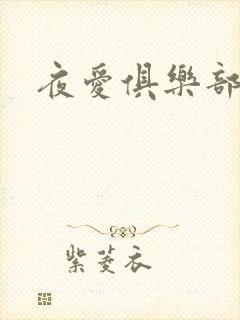 夜愛俱樂部
紫菱衣